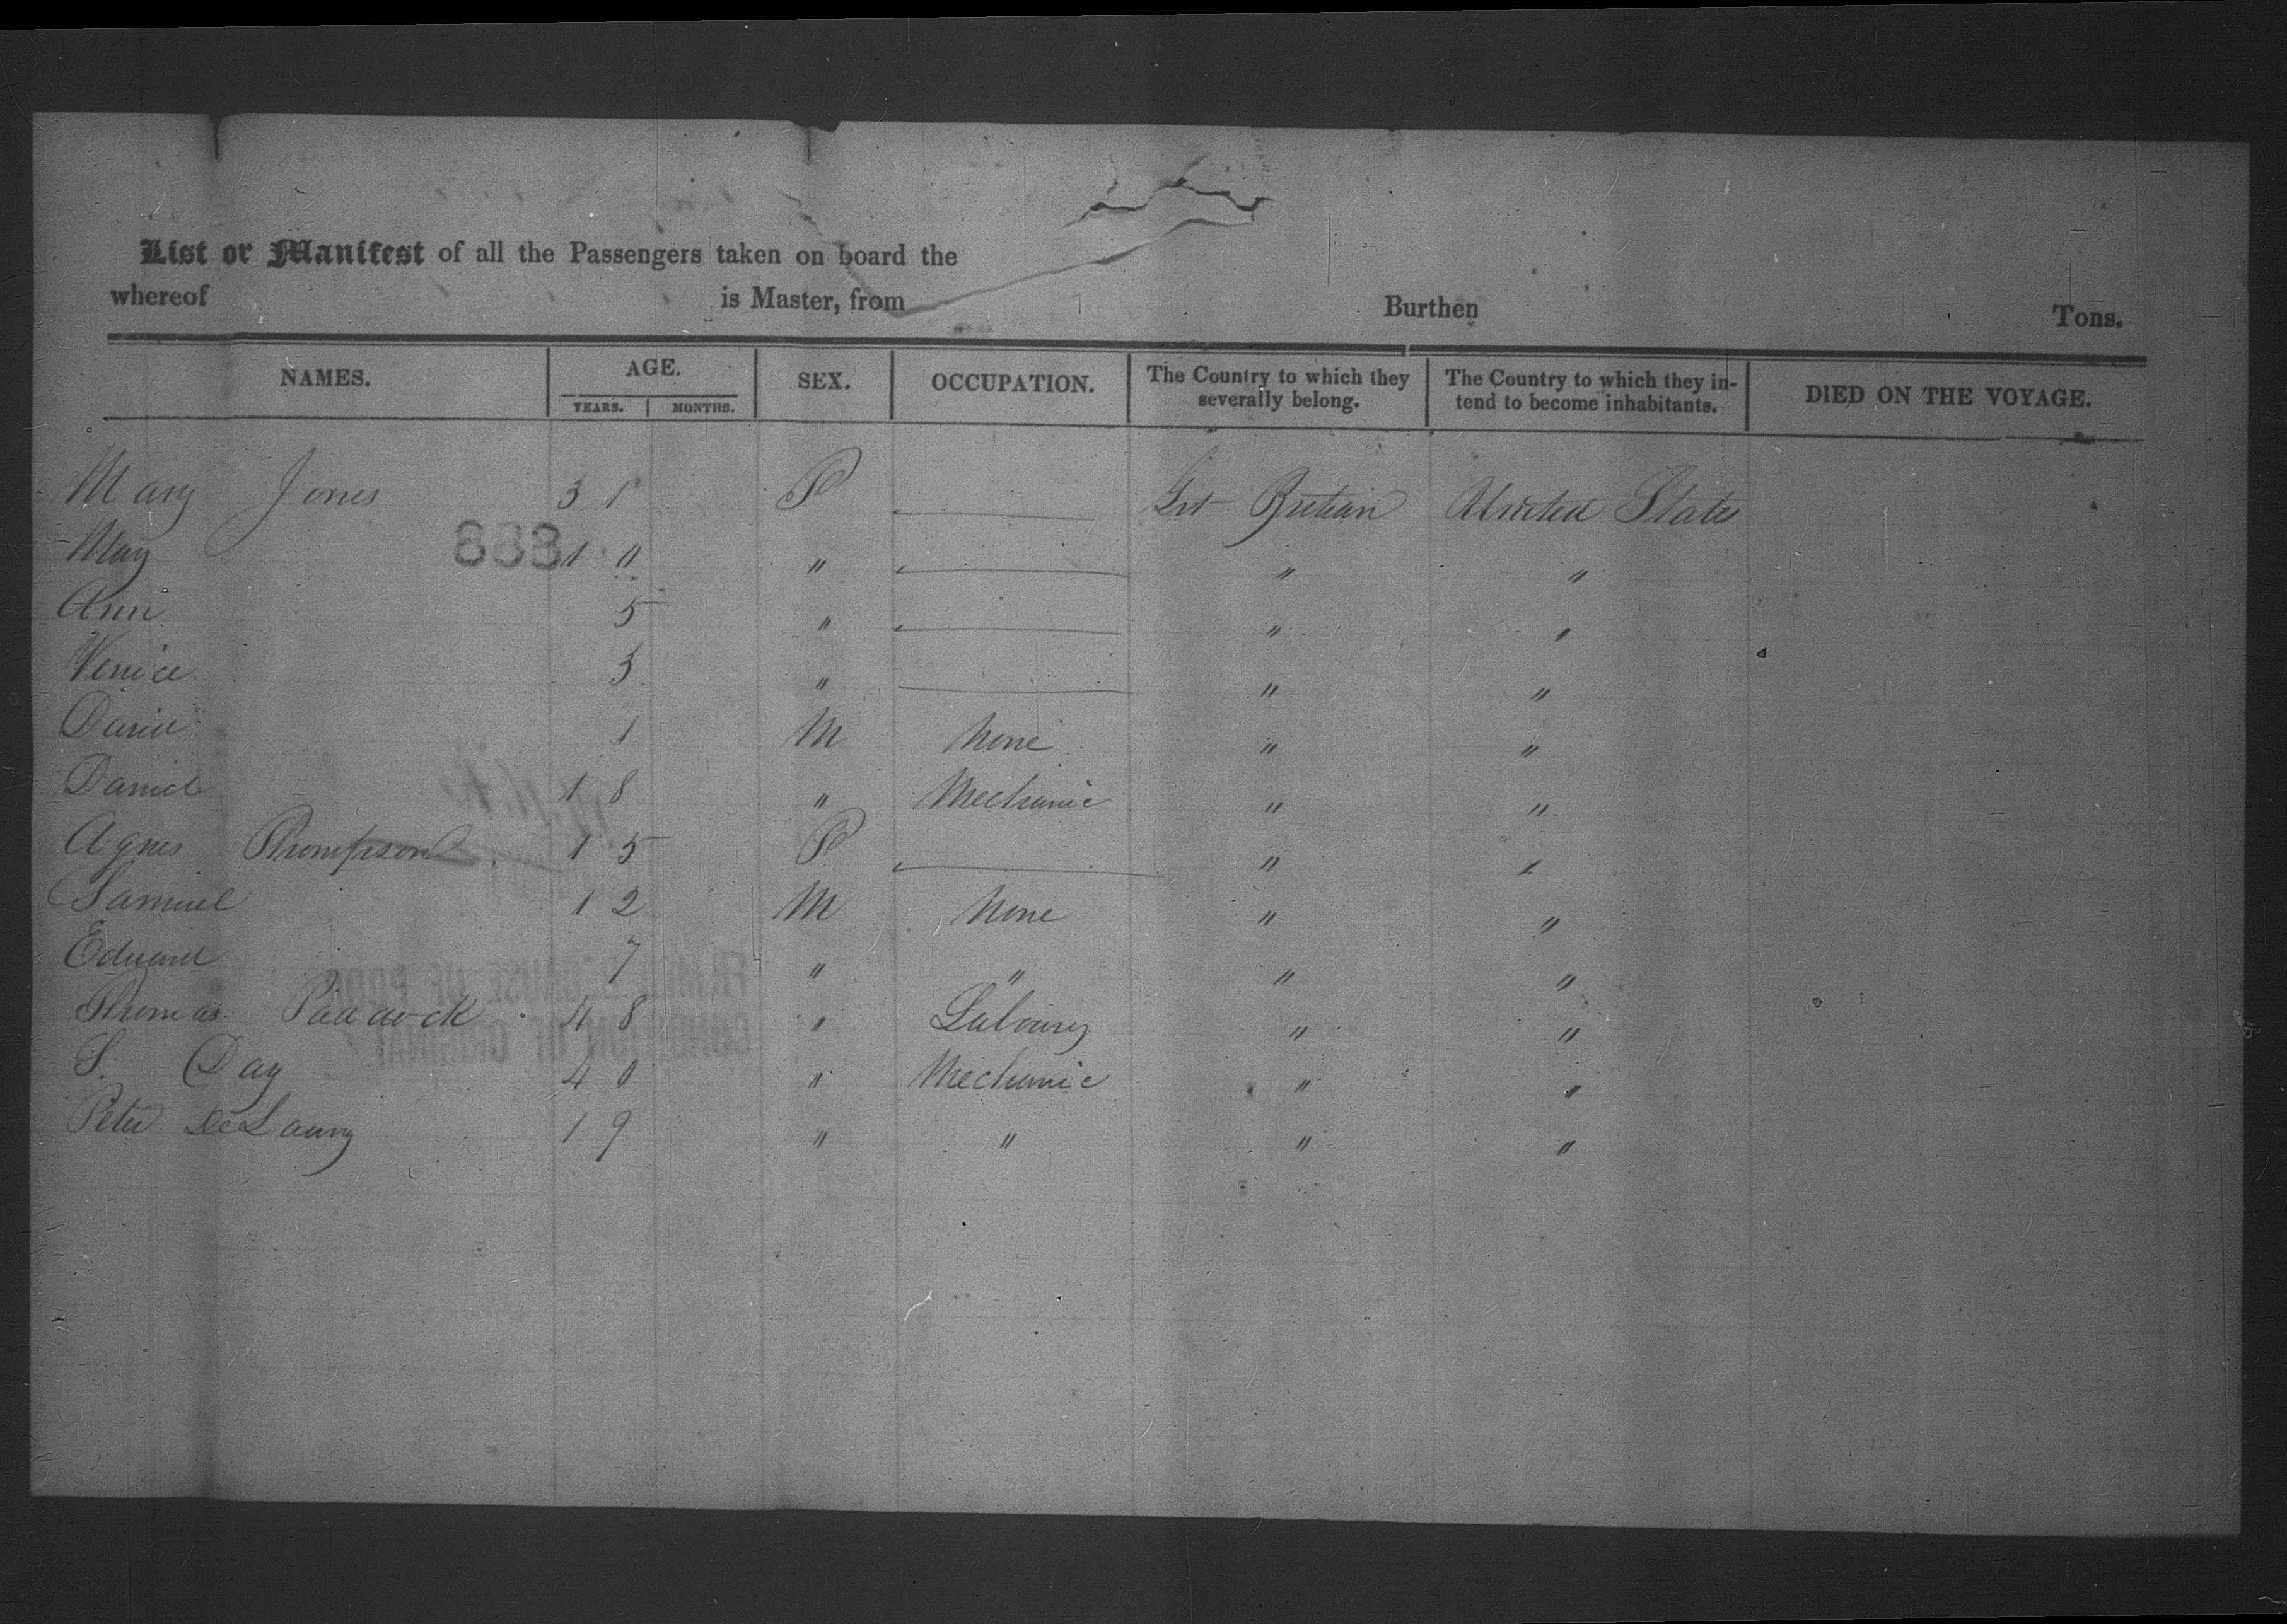 List or Manifest of all the Passengers taken on board the
whereof is Master, from Burthen Tons.
NAMES. AGE. YEARS. MONTHS. SEX. OCCUPATION. The Country to which they severally belong. The Country to which they intend to become inhabitants. DIED ON THE VOYAGE.
Mary Jones 31 F Grt Britian United States
888
Mary 10 " " "
Ann 5 " " "
Venice 3 " " "
David 1 M None " "
Daniel 18 " Mechanic " "
Agnes Thompson 15 F " "
Samuel 12 M None " "
Edward 7 " " " "
Thomas Paddock 48 " Labourer " "
S. Day 40 " Mechanic " "
Peter 19 " " " "
FILMED BECAUSE OF POOR
CONDITION OF ORIGINAL